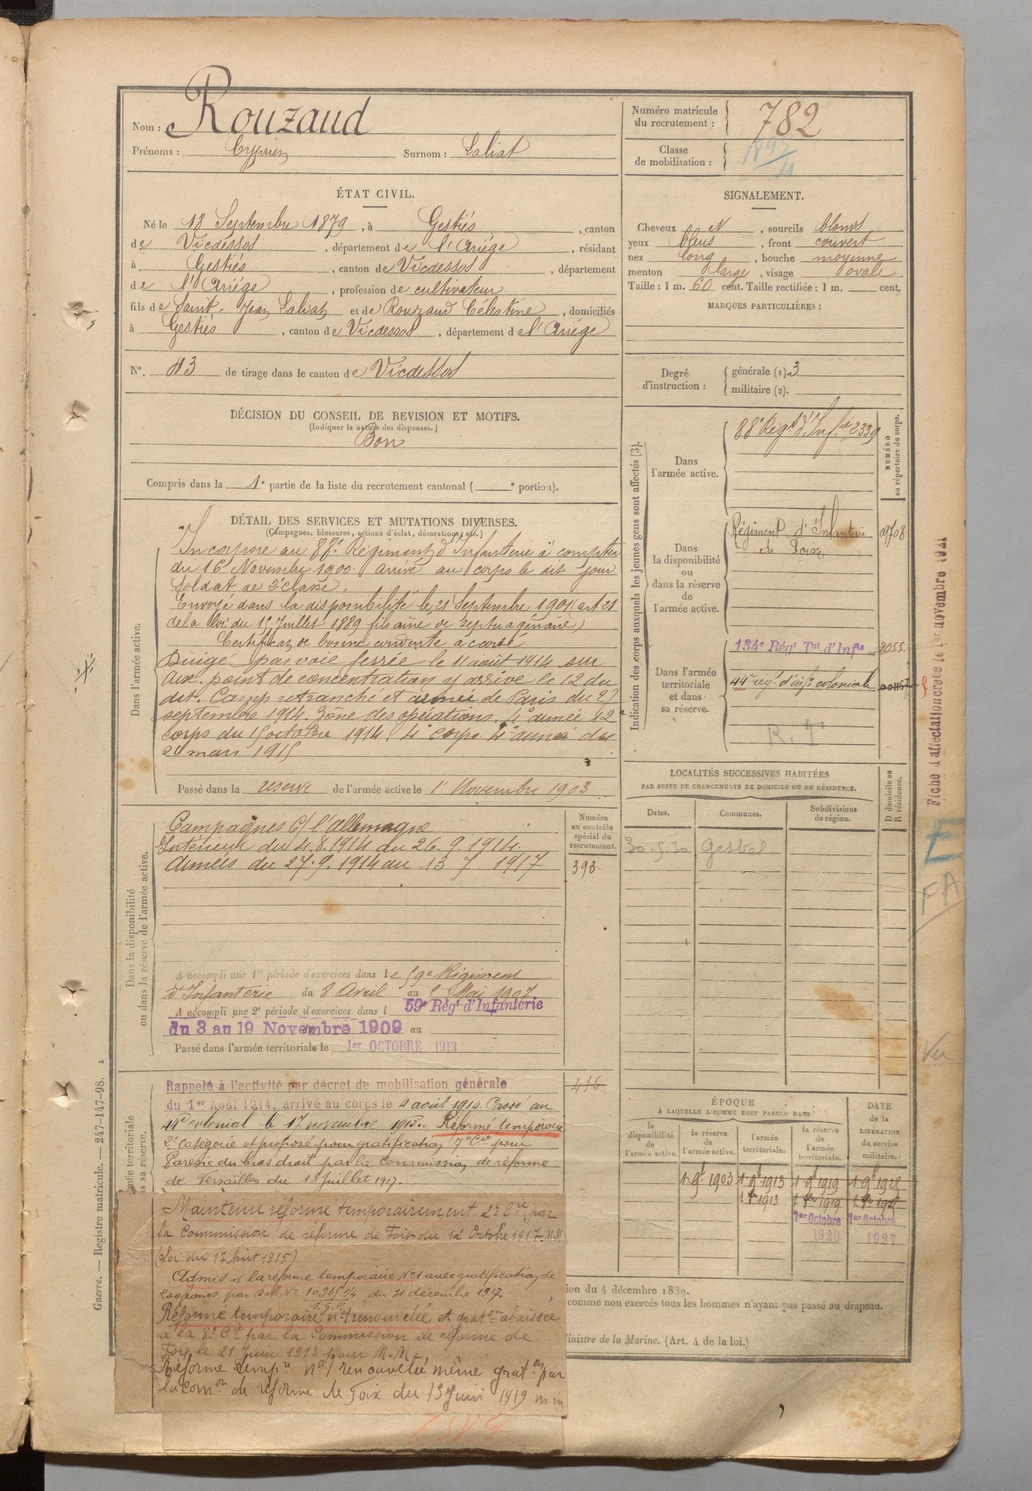 Nom : Rouzaud
Prénoms : Cyprien Surnom : Saliat
Numéro matricule du recrutement : 782
Classe de mobilisation :
ÉTAT CIVIL.
Né le 18 Septembre 1879, à Gestiés, canton
de Vicdessos, département de l'Ariége, résidant
à Gestiés, canton de Vicdessos, département
de l'Ariége, profession de cultivateur
fils de Saint-Jean Saliat et de Rouzaud Célestine, domiciliés
à Gestiés, canton de Vicdessos, département de l'Ariége
N°. 113 de tirage dans le canton de Vicdessos
SIGNALEMENT.
Cheveux N, sourcils blonds
yeux bleus, front couvert
nez long, bouche moyenne
menton large, visage ovale
Taille : 1 m. 60 cent. Taille rectifiée : 1 m. cent.
MARQUES PARTICULIÈRES :
Degré d'instruction : générale (1) 3
militaire (2).
DÉCISION DU CONSEIL DE REVISION ET MOTIFS.
(Indiquer la nature des dispenses.)
Bon
Compris dans la 1e partie de la liste du recrutement cantonal ( e portion).
DÉTAIL DES SERVICES ET MUTATIONS DIVERSES.
(Campagnes, blessures, actions d'éclat, décorations, etc.)
Dans l'armée active.
Incorporé au 88e Régiment d'Infanterie à compter
du 16 Novembre 1900 arrivé au corps le dit jour
soldat de 2e classe.
Envoyé dans la disponibilité le 21 Septembre 1901 art 21
de la loi du 15 Juillet 1889 fils ainé de septuagénaire)
Certificat de bonne conduite accordé
Dirigé par voie ferrée le 11 août 1914 sur
point de concentration y arrive le 12 du
dit. Camp retranché et armée de Paris du 27
septembre 1914. Zône des opérations. 4e armée 12e
corps du 15 octobre 1914. 4e corps 4e armée du
20 mars 1915
Passé dans la réserve de l'armée active le 1er Novembre 1903
Indication des corps auxquels les jeunes gens sont affectés (3).
NUMÉRO au répertoire du corps.
Dans l'armée active. 88e Régt d'Infie 2339
Dans la disponibilité ou dans la réserve de l'armée active. Régiment d'Infanterie de Foix 01708
Dans l'armée territoriale et dans sa réserve. 134e Régt Tal d'Infie
44e régt d'inf coloniale
R. T
Fiche d'affectation créée le 1er novembre 1921
LOCALITÉS SUCCESSIVES HABITÉES
PAR SUITE DE CHANGEMENTS DE DOMICILE OU DE RÉSIDENCE.
Dates. Communes. Subdivisions de région. D domicile ou R résidence.
30.5.30
FA
Vu
Dans la disponibilité ou dans la réserve de l'armée active.
Campagnes C/ l'allemagne
Intérieur du 4.8.1914 au 26.9.1914.
Armées du 27.9.1914 au 13 7 1917
Numéro au contrôle spécial du recrutement.
393
A accompli une 1re période d'exercices dans le 59e Régiment
d'Infanterie du 8 Avril au Mai 1907
A accompli une 2e période d'exercices dans l 59e Régt d'Infanterie
du 3 au 19 Novembre 1909 au
Passé dans l'armée territoriale le 1er OCTOBRE 1913
Rappelé à l'activité par décret de mobilisation générale
du 1er Août 1914, arrivé au corps le 4 août 1914. Passé au
44e colonial le 17 novembre 1915. Réformé temporaire
2e catégorie et proposé pour gratification 7e Cie pour
Parésie du bras droit par la commission de réforme
de Versailles du 13 juillet 1917.
416
Maintenu réformé temporairement 2e Cie par
la Commission de réforme de Foix du 12 Octobre 1917 M.M
(Loi du 17 Août 1915)
Admis à la réforme temporaire No 1 avec gratification de
du 31 décembre 1917.
Réforme temporaire n°1 renouvelée et gration abaissée
à la 8e Cie par la Commission de réforme de
Foix le 21 Juin 1918 pour M.M.
Réforme tempre no 1 renouvelée même graton par
la comon de réforme de Foix du 13 Juin 1919 m.m
ÉPOQUE
À LAQUELLE L'HOMME DOIT PASSER DANS
la disponibilité de l'armée active. la réserve de l'armée active. l'armée territoriale. la réserve de l'armée territoriale.
DATE de la LIBÉRATION du service militaire.
1 9b 1903 1 9b 1913 1 9b 1919
1er Octobre 1920 1er Octobre 1927
ion du 4 décembre 1889.
comme non exercés tous les hommes n'ayant pas passé au drapeau.
Ministre de la Marine. (Art. 4 de la loi.)
Guerre. — Registre matricule. — 247-147-98.